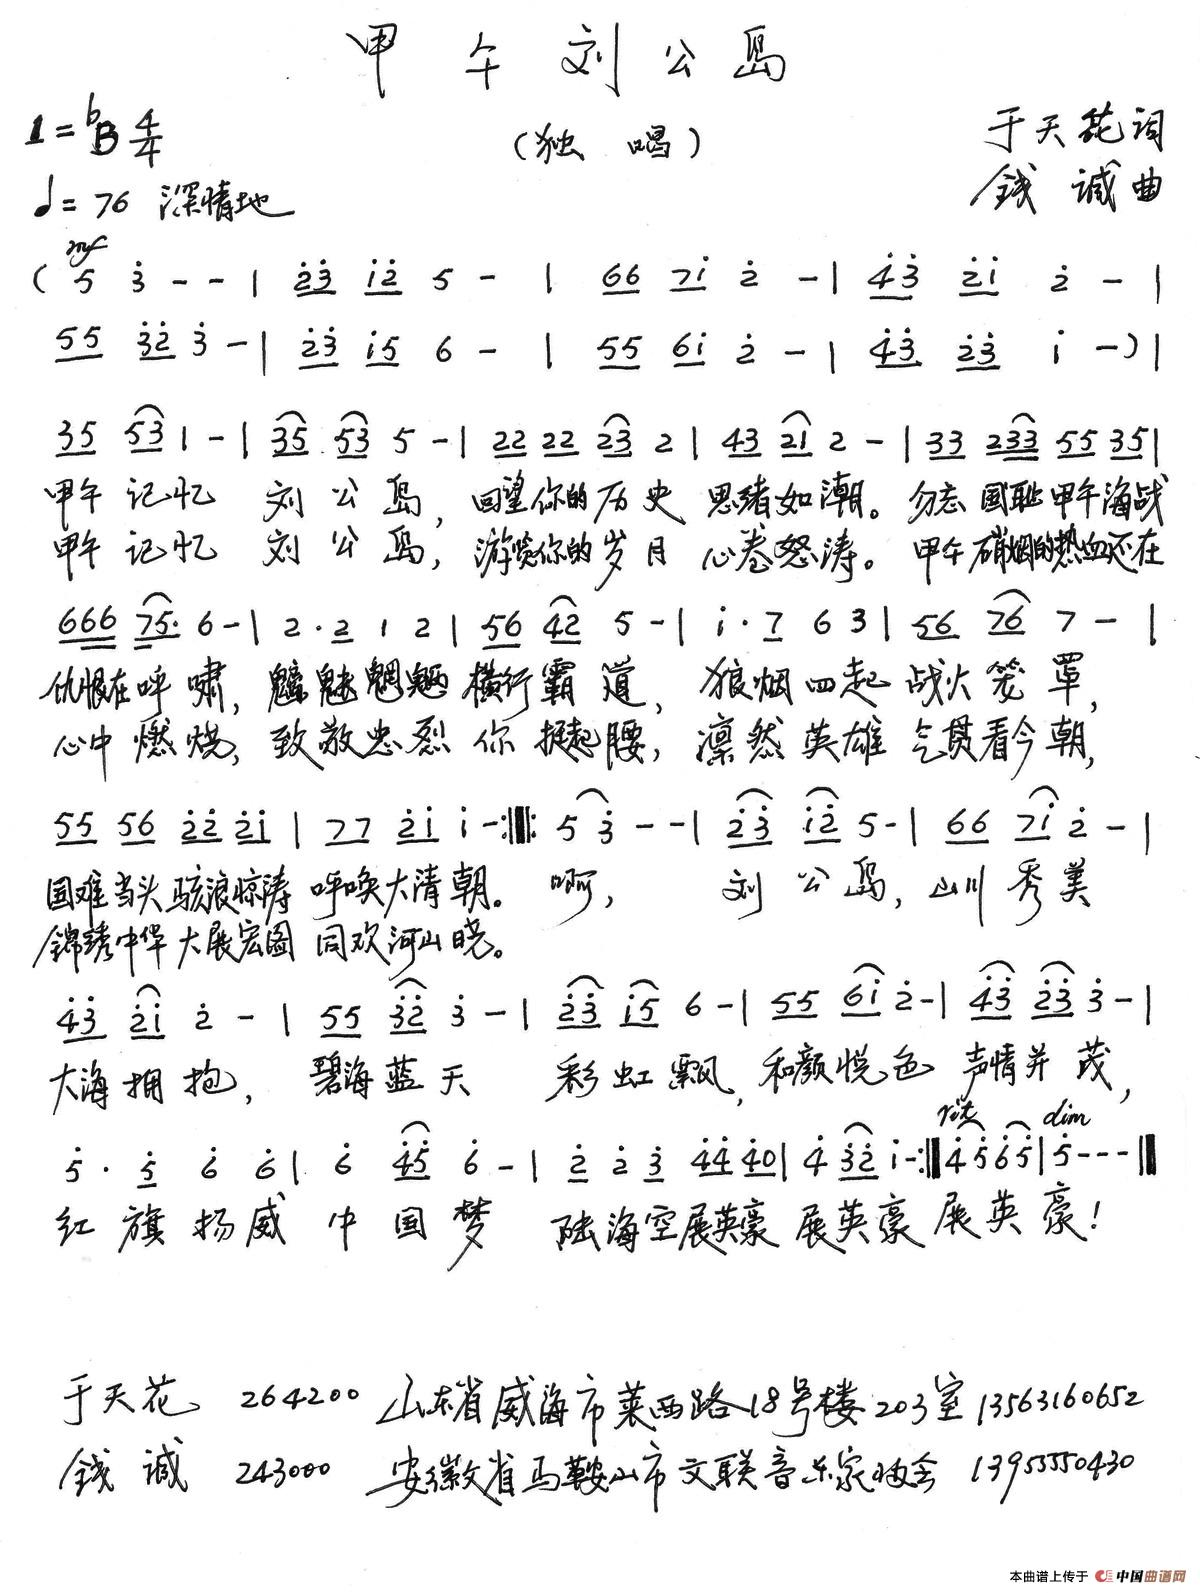 甲午刘公岛
(独 唱)
1=♭B 4/4
于天花词
♩=76 深情地
钱 诚曲
mf
( 5 3̇ - - | 2̇3̇ 1̇2̇ 5 - | 66 71̇ 2̇ - | 4̇3̇ 2̇1̇ 2̇ - |
55 3̇2̇ 3̇ - | 2̇3̇ 1̇5 6 - | 55 61̇ 2̇ - | 4̇3̇ 2̇3̇ 1̇ - ) |
35 53 1 - | 35 53 5 - | 22 22 23 2 | 43 21 2 - | 33 233 55 35 |
甲午 记忆 刘 公 岛, 回望你的 历 史 思绪如潮。 勿忘 国耻 甲午海战
甲午 记忆 刘 公 岛, 游览你的 岁 月 心卷怒涛。 甲午 硝烟的热血还在
666 75· 6 - | 2 · 2 1 2 | 56 42 5 - | 1̇ · 7 6 3 | 56 76 7 - |
仇恨在呼 啸, 魑魅魍魉 横行霸 道, 狼烟四起 战火笼 罩,
心中 燃 烧, 致敬忠烈 你 挺起腰, 凛然英雄 气贯看今朝,
55 56 2̇2̇ 2̇1̇ | 77 2̇1̇ 1̇ - :‖: 5 3̇ - - | 2̇3̇ 1̇2̇ 5 - | 66 71̇ 2̇ - |
国难当头 骇浪惊涛 呼唤大清朝。 啊, 刘 公 岛, 山川 秀美
锦绣中华 大展宏图 同欢河山晓。
4̇3̇ 2̇1̇ 2̇ - | 55 3̇2̇ 3̇ - | 2̇3̇ 1̇5 6 - | 55 61̇ 2̇ - | 4̇3̇ 2̇3̇ 3̇ - |
大海拥 抱, 碧海蓝天 彩虹飘, 和颜悦色 声情并茂,
rit dim
5̇ · 5̇ 6̇ 6̇ | 6̇ 4̇5̇ 6̇ - | 2̇ 2̇ 3̇ 4̇4̇ 4̇0 | 4̇ 3̇2̇ 1̇ - :‖ 4̇ 5̇ 6̇ 5̇ | 5̇ - - - ‖
红 旗 扬 威 中 国 梦 陆海空展英豪 展英豪 展英 豪!
于天花 264200 山东省威海市莱西路18号楼203室 13563160652
钱 诚 243000 安徽省马鞍山市文联音乐家协会 13955550430
本曲谱上传于 中国曲谱网